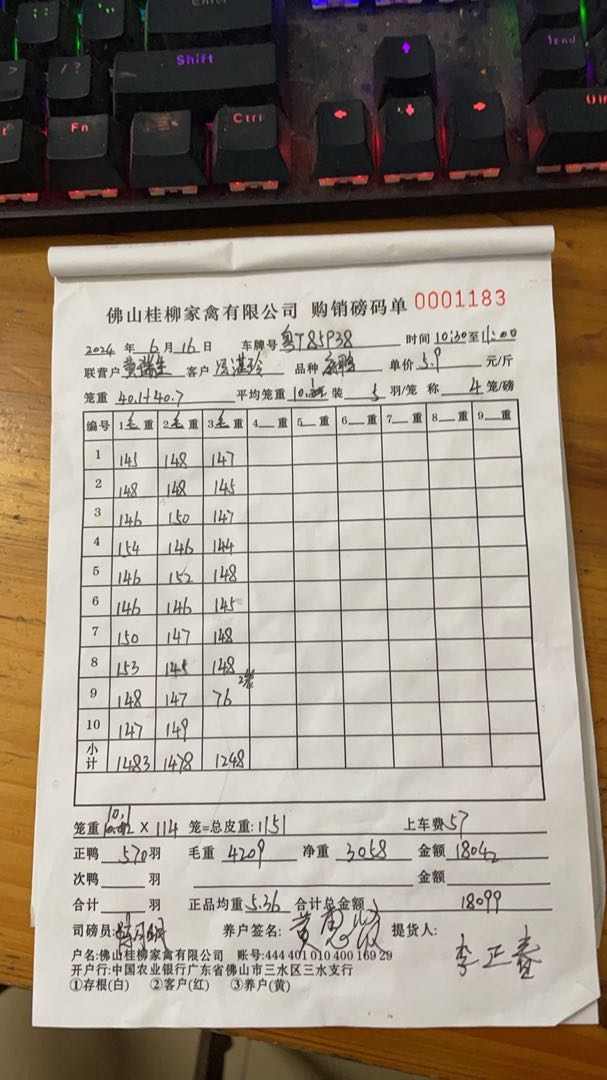 Enter
Shift
1End
Fn
Ctrl
佛山桂柳家禽有限公司 购销磅码单 0001183
2024 年 6 月 16 日 车牌号 粤T85P38 时间 10:30 至 11:00
联营户 黄瑞生 客户 品种 单价 5.9 元/斤
笼重 40.1+40.7 平均笼重 装 5 羽/笼 称 4 笼/磅
编号 1毛重 2毛重 3毛重 4__重 5__重 6__重 7__重 8__重 9__重
1 145 148 147
2 148 148 145
3 146 150 147
4 154 146 144
5 146 152 148
6 146 146 145
7 150 147 148
8 153 145 148
9 148 147 76 2笼
10 147 149
小计 1483 1478 1248
笼重 10.1 × 114 笼=总皮重: 1151 上车费 57
正鸭 570 羽 毛重 4209 净重 3058 金额 18042
次鸭 羽 金额
合计 羽 正品均重 5.36 合计总金额 18099
司磅员: 养户签名: 黄 提货人: 李正春
户名:佛山桂柳家禽有限公司 账号:444 401 010 400 169 29
开户行:中国农业银行广东省佛山市三水区三水支行
①存根(白) ②客户(红) ③养户(黄)